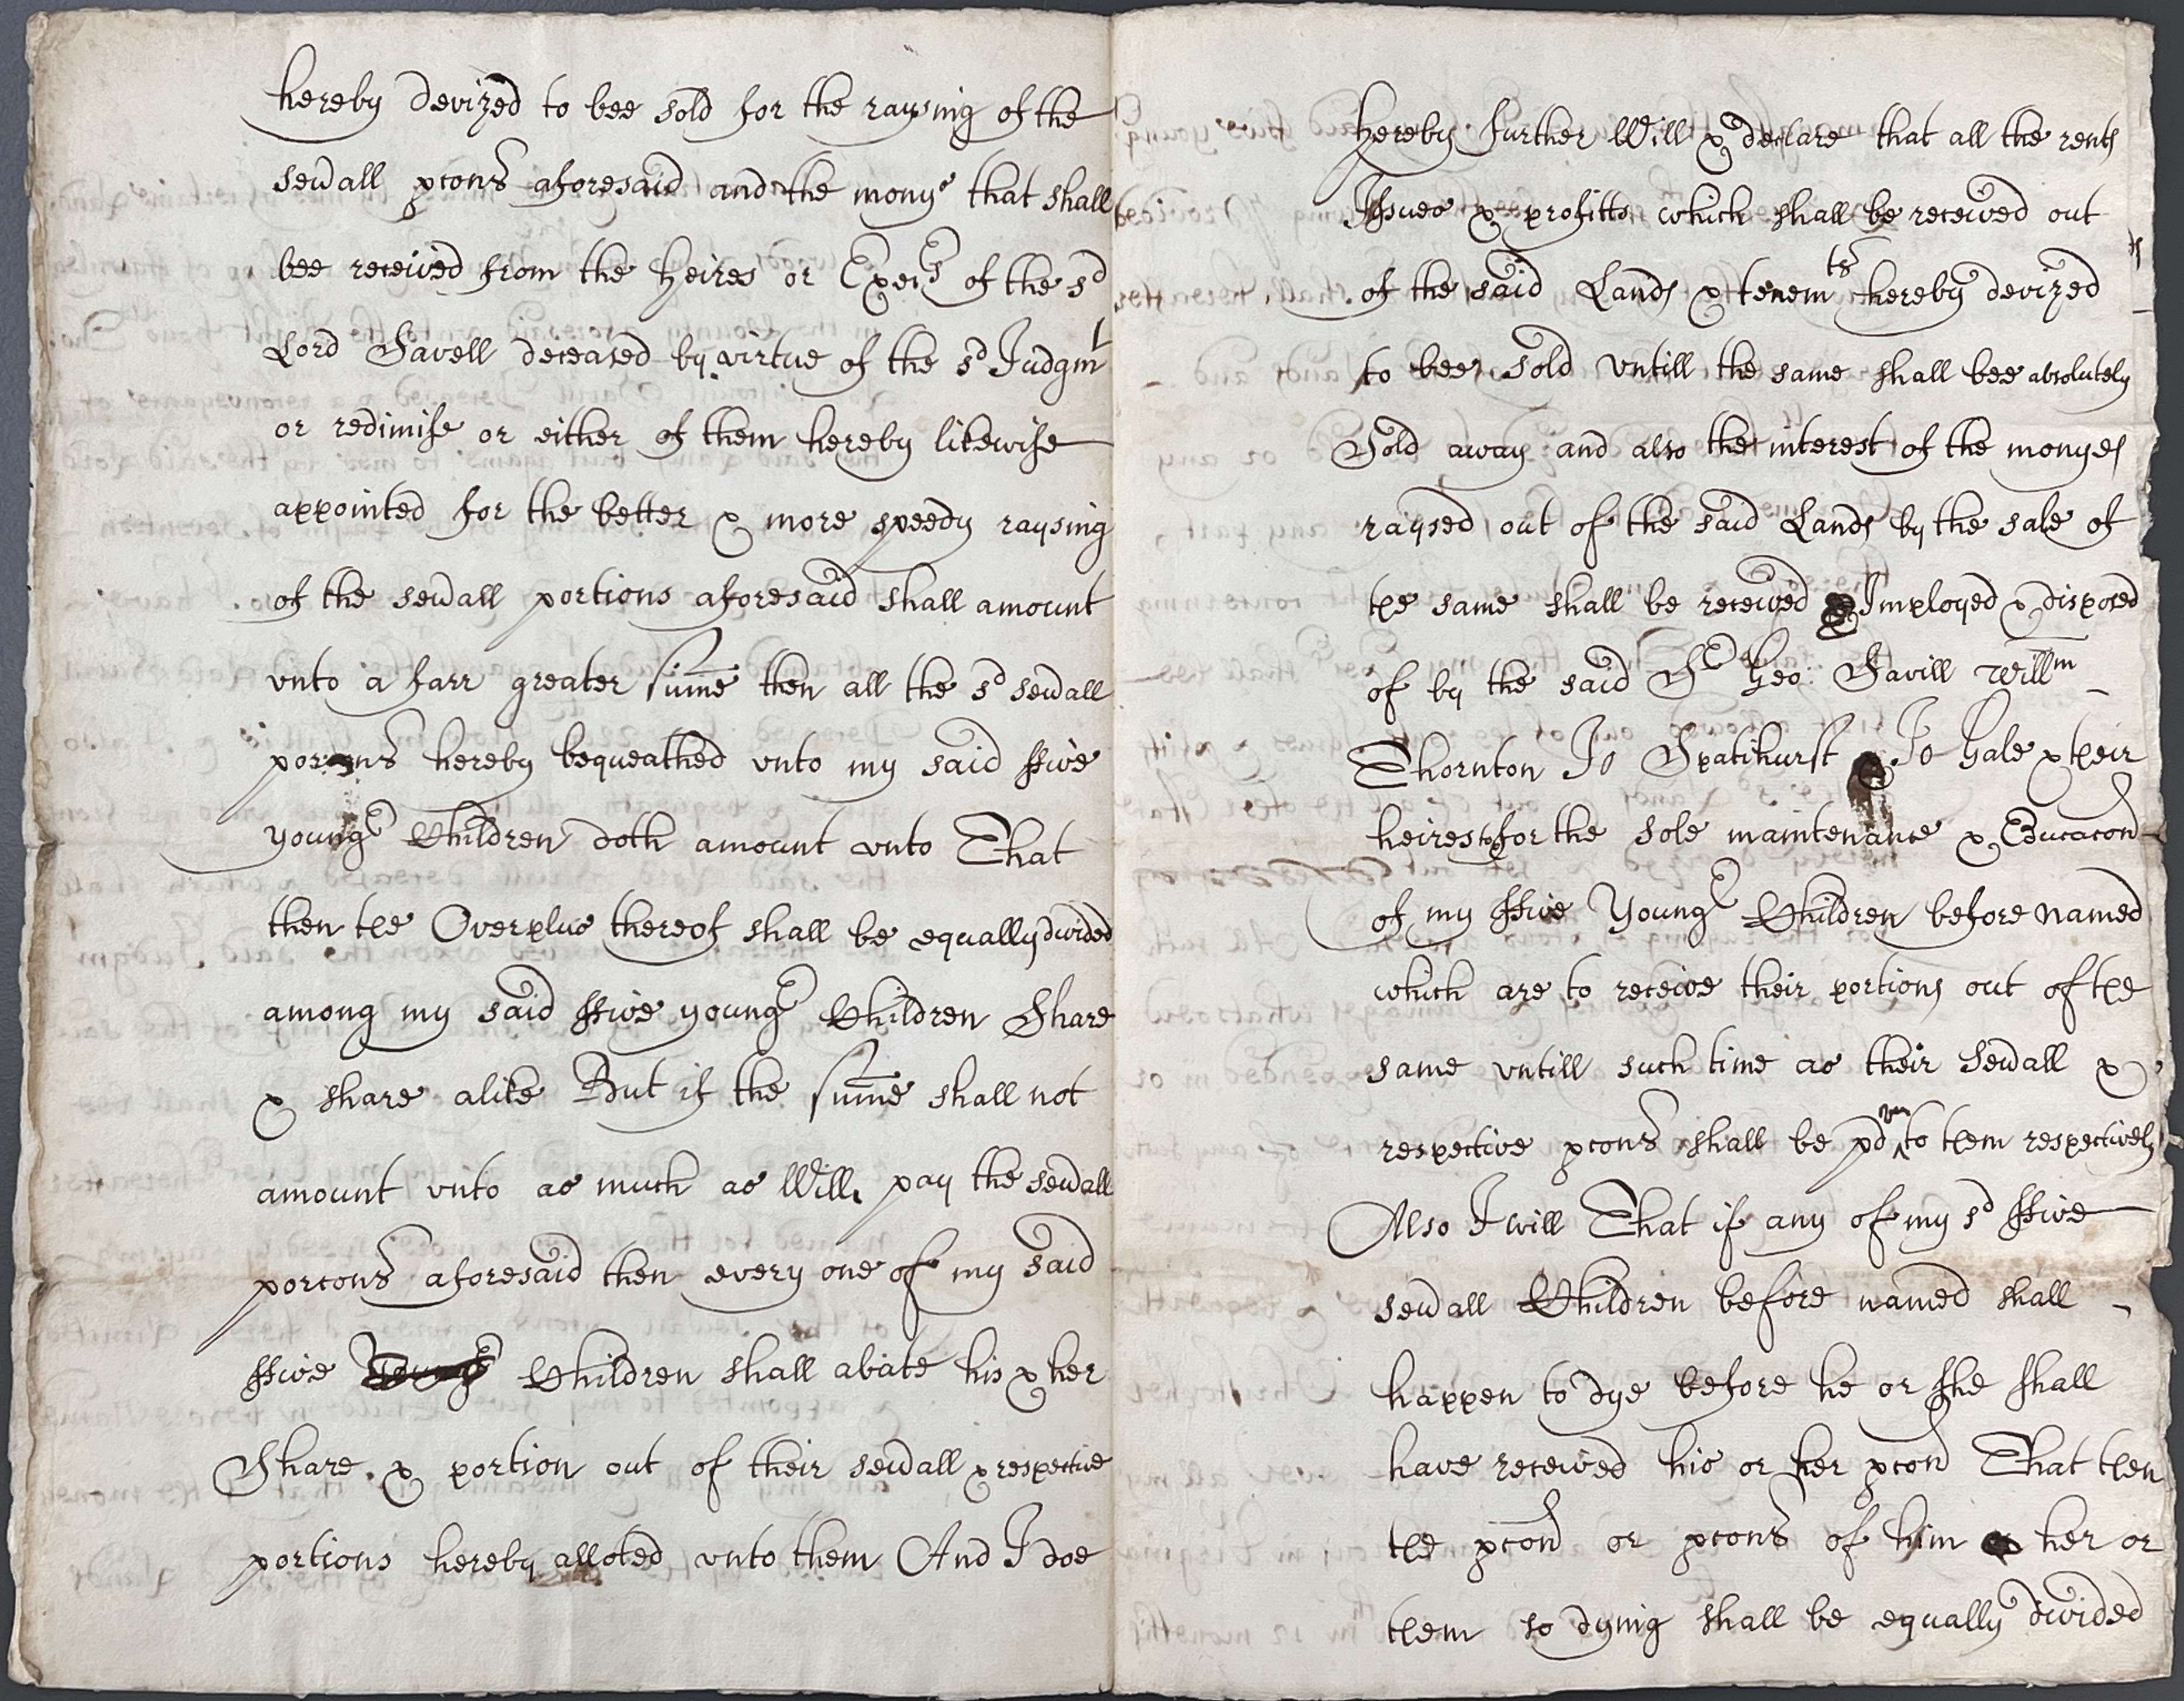 hereby devized to bee sold for the raysing of the
sev̄all pcons aforesaid and the monys that shall
bee received from the heires or Execrs of the sd
Lord Savell deceased by virtue of the sd Judgmt
or redimise or either of them hereby likewise
appointed for the better & more speedy raysing
of the sev̄all portions aforesaid shall amount
vnto a farr greater sum̄e then all the sd sev̄all
porcons hereby bequeathed vnto my said ffive
youngr Children doth amount vnto That
then the Overplus thereof shall be equally divided
among my said ffive youngr Children Share
& share alike But if the sum̄e shall not
amount vnto as much as Will pay the sev̄all
porcons aforesaid then every one of my said
ffive Children shall abate his & her
Share & portion out of their sev̄all & respective
portions hereby alloted vnto them And I doe
hereby further Will & declare that all the rents
Issues & profitts which shall be received out
of the said Lands & tenemts hereby devized
to bee sold vntill the same shall bee absolutely
Sold away and also the interest of the monyes
raysed out of the said Lands by the sale of
the same shall be received Imployed & disposed
of by the said Sr Geo: Savill Willm
Thornton Jo Spatihurst Jo Gale & their
heires for the sole maintenance & Educacon
of my ffive Youngr Children before named
which are to receive their portions out of the
same vntill such time as their Sev̄all &
respective pcons shall be pd to them respectively
Also I will That if any of my sd ffive
sev̄all Children before named shall
happen to dye before he or she shall
have received his or her pcon That then
the pcon or pcons of him or her or
them so dying shall be equally divided